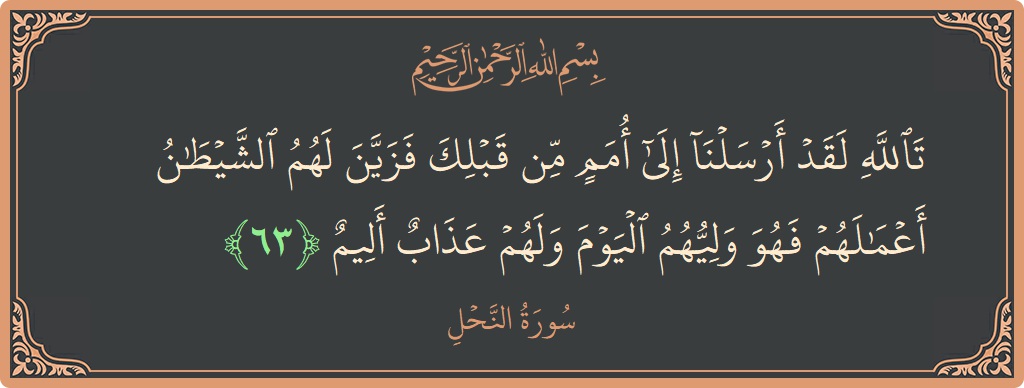 بِسْمِ اللهِ الرَّحْمٰنِ الرَّحِيْمِ
تَٱللَّهِ لَقَدْ أَرْسَلْنَآ إِلَىٰٓ أُمَمٍ مِّن قَبْلِكَ فَزَيَّنَ لَهُمُ ٱلشَّيْطَـٰنُ
أَعْمَـٰلَهُمْ فَهُوَ وَلِيُّهُمُ ٱلْيَوْمَ وَلَهُمْ عَذَابٌ أَلِيمٌ ﴿٦٣﴾
سُورَةُ النَّحْلِ